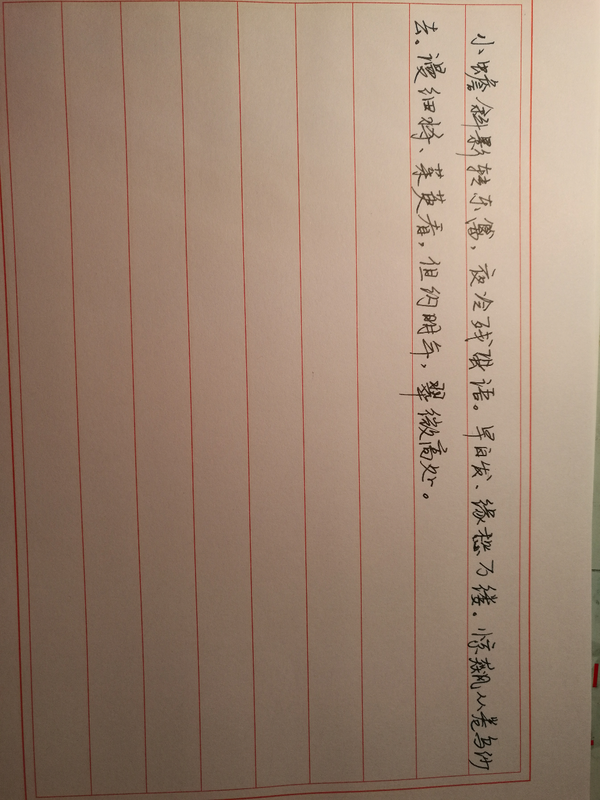 小蟾斜影转东篱，夜冷残蛩语。早白发、缘愁万缕。惊飙从卷乌纱
去。谩细将、茱萸看，但约明年，翠微高处。